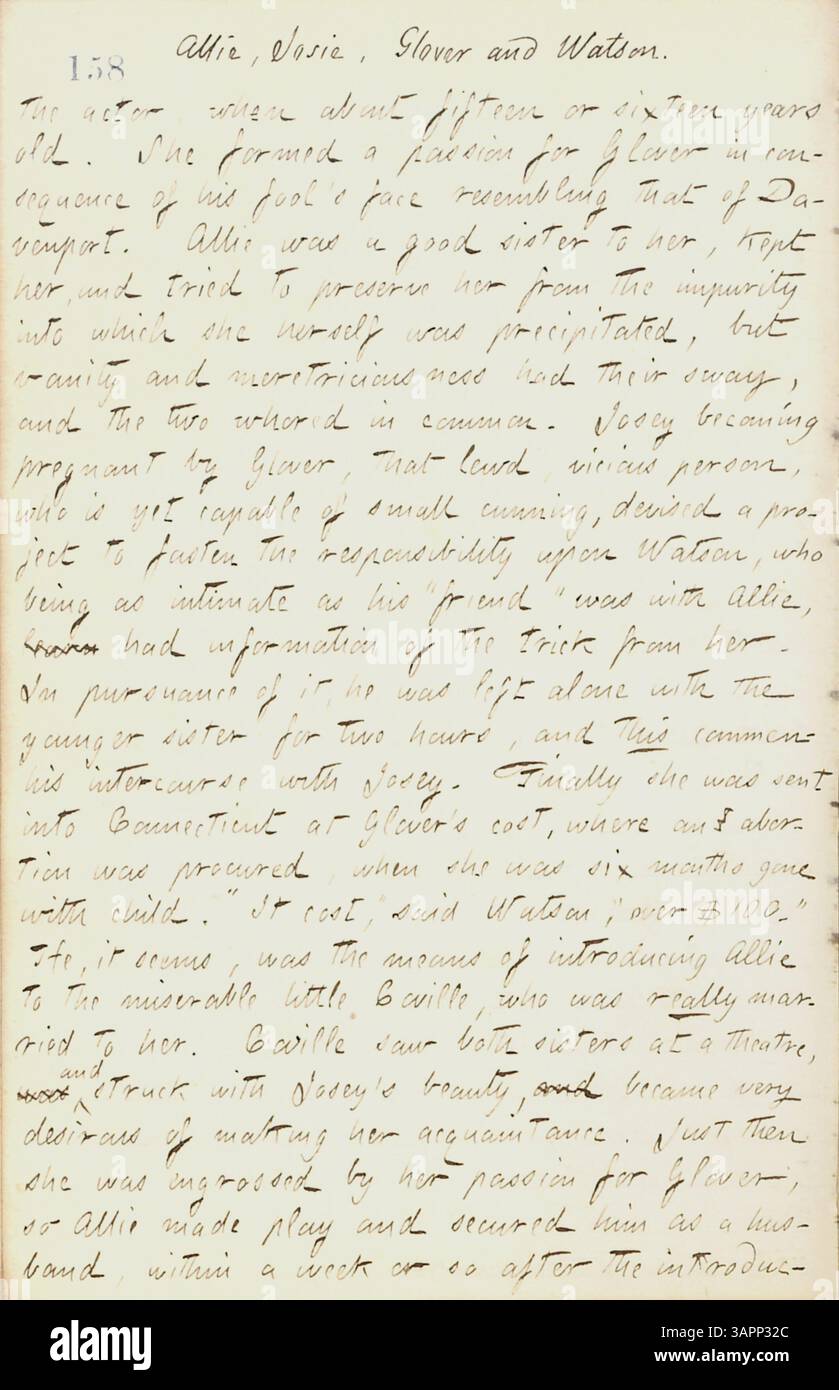 Allie, Josie, Glover and Watson.
158
the actor, when about fifteen or sixteen years
old. She formed a passion for Glover in con-
sequence of his fool's face resembling that of Da-
venport. Allie was a good sister to her, kept
her, and tried to preserve her from the impurity
into which she herself was precipitated, but
vanity and meretriciousness had their sway,
and the two whored in common. Josey becoming
pregnant by Glover, that lewd, vicious person,
who is yet capable of small cunning, devised a pro-
ject to fasten the responsibility upon Watson, who
being as intimate as his "friend" was with Allie,
had information of the trick from her.
In pursuance of it, he was left alone with the
younger sister for two hours, and this commen-
his intercourse with Josey. Finally she was sent
into Connecticut at Glover's cost, where an abor-
tion was procured, when she was six months gone
with child. "It cost," said Watson, "over $100."
He, it seems, was the means of introducing Allie
to the miserable little Coville, who was really mar-
ried to her. Coville saw both sisters at a theatre,
was and struck with Josey's beauty, and became very
desirous of making her acquaintance. Just then
she was engrossed by her passion for Glover,
so Allie made play and secured him as a hus-
band, within a week or so after the introduc-
alamy
alamy
Image ID: 3APP32C
www.alamy.com